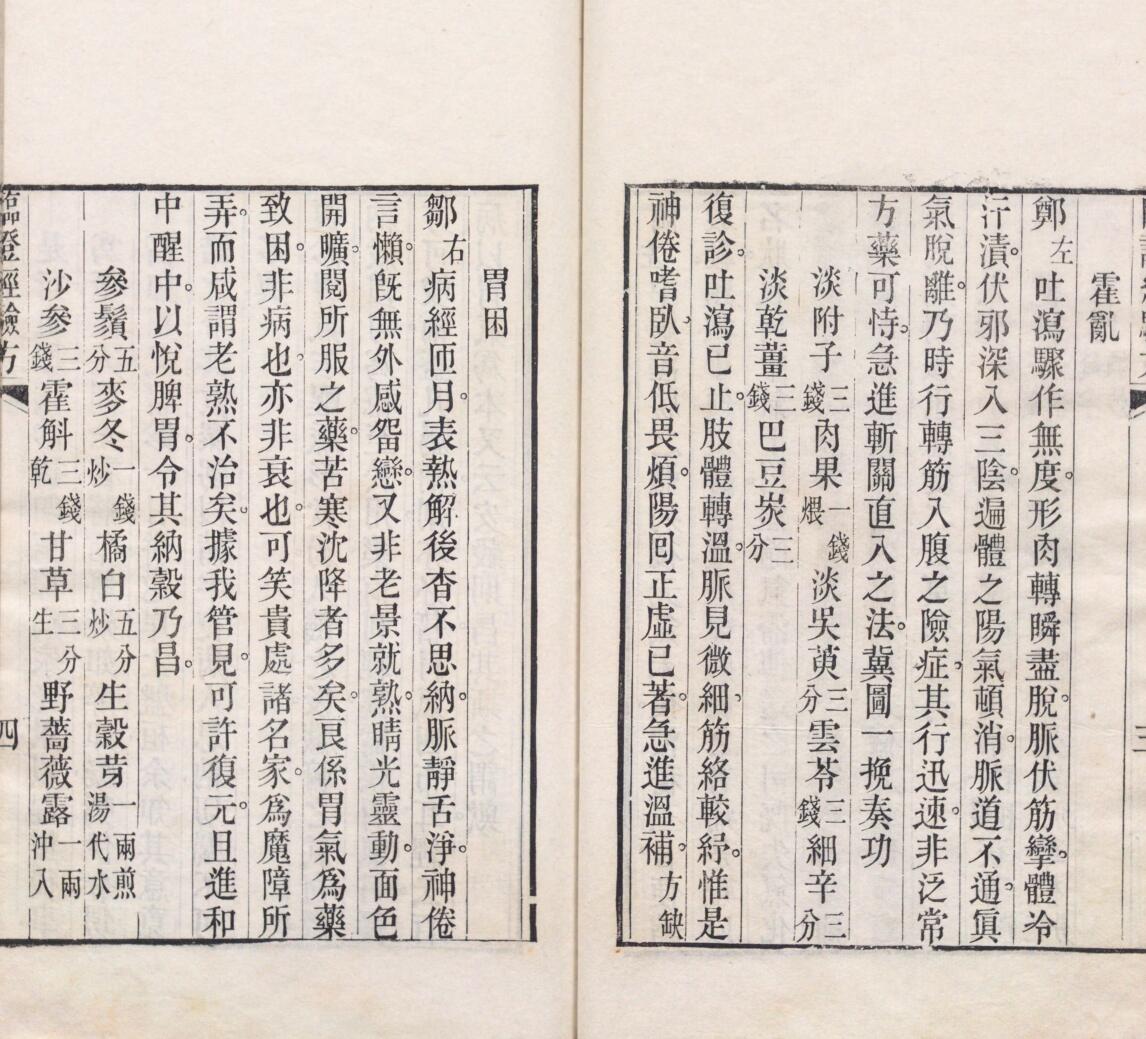 霍亂
鄭左吐瀉驟作無度。形肉轉瞬盡脫。脈伏筋攣。體冷
汗漬。伏邪深入三陰。遍體之陽氣頓消。脈道不通。眞
氣脫離。乃時行轉筋入腹之險症。其行迅速。非泛常
方藥可恃。急進斬關直入之法。冀圖一挽奏功
淡附子三錢肉果一錢煨淡吳萸三分雲苓三錢細辛三分
淡乾薑三錢巴豆炭三分
復診。吐瀉已止。肢體轉溫。脈見微細。筋絡較紓。惟是
神倦嗜臥。音低畏煩。陽回正虛已著。急進溫補。方缺
胃困
鄒右病經匝月。表熱解後。杳不思納。脈靜舌淨。神倦
言懶。旣無外感畱戀。又非老景就熟。睛光靈動。面色
開曠。閱所服之藥。苦寒沈降者多矣。良係胃氣爲藥
致困。非病也。亦非衰也。可笑貴處諸名家。爲魔障所
弄。而咸謂老熟不治矣。據我管見。可許復元。且進和
中醒中。以悅脾胃。令其納穀乃昌。
參鬚五分麥冬一錢炒橘白五分炒生穀芽一兩煎湯代水
沙參三錢霍斛三錢乾甘草三分生野薔薇露一兩沖入
證經驗方
四